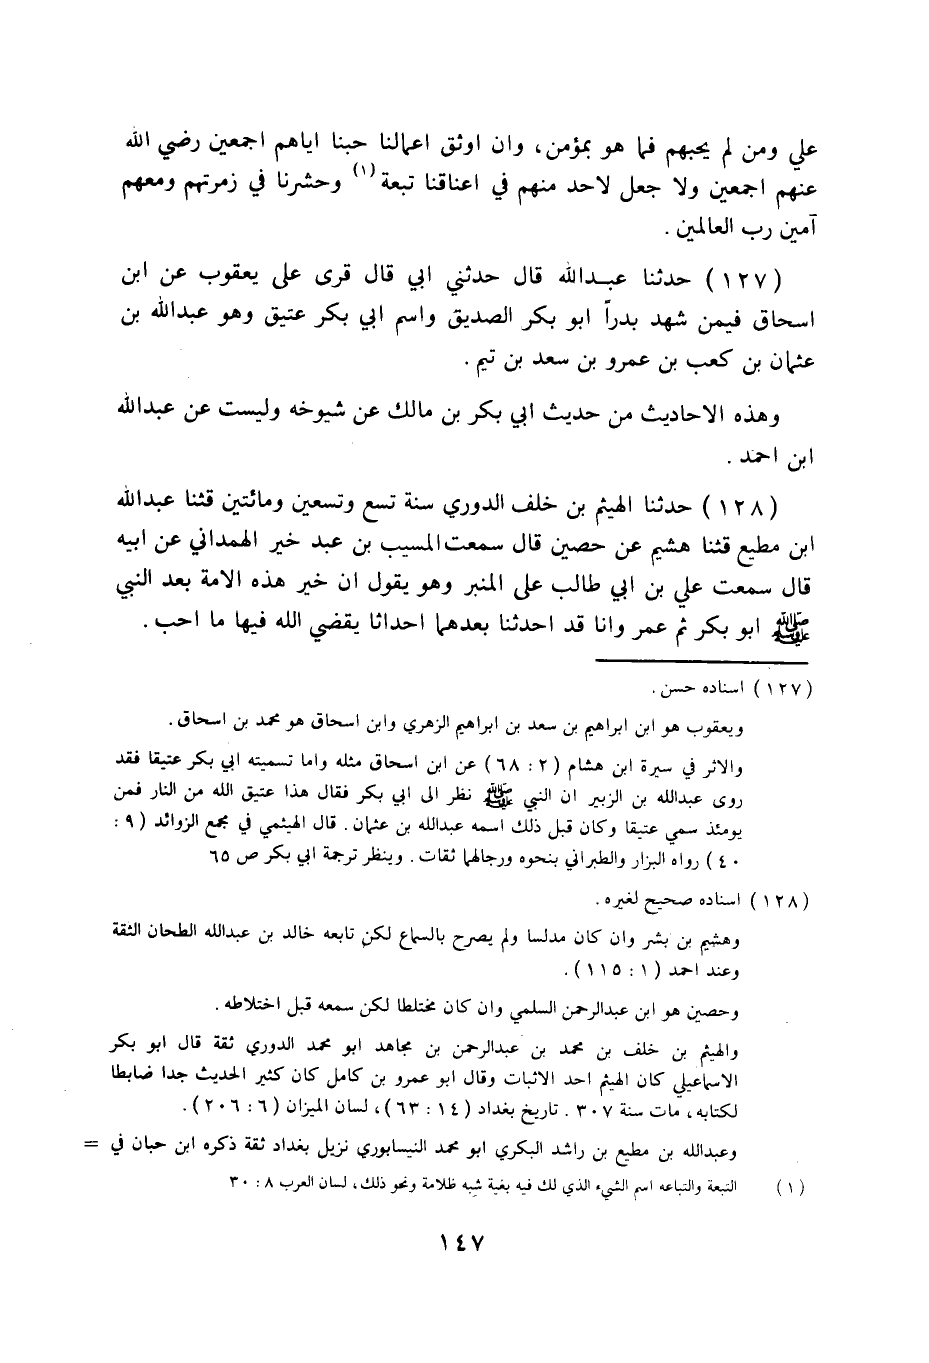 علي ومن لم يحبهم فما هو بمؤمن، وان اوثق اعمالنا حبنا اياهم اجمعين رضي الله
عنهم اجمعين ولا جعل لاحد منهم في اعناقنا تبعة (١) وحشرنا في زمرتهم ومعهم
آمين رب العالمين .
(١٢٧) حدثنا عبدالله قال حدثني ابي قال قرى على يعقوب عن ابن
اسحاق فيمن شهد بدراً ابو بكر الصديق واسم ابي بكر عتيق وهو عبدالله بن
عثمان بن كعب بن عمرو بن سعد بن تيم .
وهذه الاحاديث من حديث ابي بكر بن مالك عن شيوخه وليست عن عبدالله
ابن احمد .
(١٢٨) حدثنا الهيثم بن خلف الدوري سنة تسع وتسعين ومائتين قثنا عبدالله
ابن مطيع قثنا هشيم عن حصين قال سمعت المسيب بن عبد خير الهمداني عن ابيه
قال سمعت علي بن ابي طالب على المنبر وهو يقول ان خير هذه الامة بعد النبي
ﷺ ابو بكر ثم عمر وانا قد احدثنا بعدهما احداثا يقضي الله فيها ما احب .
(١٢٧) اسناده حسن .
ويعقوب هو ابن ابراهيم بن سعد بن ابراهيم الزهري وابن اسحاق هو محمد بن اسحاق .
والاثر في سيرة ابن هشام (٢ : ٦٨) عن ابن اسحاق مثله واما تسميته ابي بكر عتيقا فقد
روى عبدالله بن الزبير ان النبي ﷺ نظر الى ابي بكر فقال هذا عتيق الله من النار فمن
يومئذ سمي عتيقا وكان قبل ذلك اسمه عبدالله بن عثمان . قال الهيثمي في مجمع الزوائد (٩ :
٤٠) رواه البزار والطبراني بنحوه ورجالهما ثقات . وينظر ترجمة ابي بكر ص ٦٥
(١٢٨) اسناده صحيح لغيره .
وهشيم بن بشر وان كان مدلسا ولم يصرح بالسماع لكن تابعه خالد بن عبدالله الطحان الثقة
وعند احمد (١ : ١١٥) .
وحصين هو ابن عبدالرحمن السلمي وان كان مختلطا لكن سمعه قبل اختلاطه .
والهيثم بن خلف بن محمد بن عبدالرحمن بن مجاهد ابو محمد الدوري ثقة قال ابو بكر
الاسماعيلي كان الهيثم احد الاثبات وقال ابو عمرو بن كامل كان كثير الحديث جدا ضابطا
لكتابه، مات سنة ٣٠٧ . تاريخ بغداد (١٤ : ٦٣)، لسان الميزان (٦ : ٢٠٦) .
وعبدالله بن مطيع بن راشد البكري ابو محمد النيسابوري نزيل بغداد ثقة ذكره ابن حبان في =
(١) التبعة والتباعه اسم الشيء الذي لك فيه بغية شبه ظلامة ونحو ذلك، لسان العرب ٨ : ٣٠
١٤٧